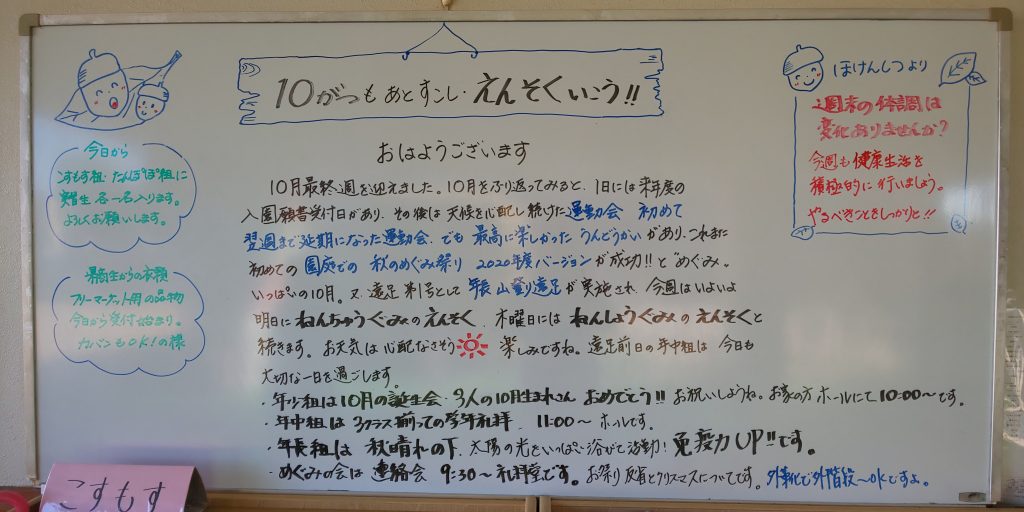 10がつも あとすこし・えんそくいこう!!
今日から
こすもす組・たんぽぽ組に
実習生 各一名入ります。
よろしくお願いします。
卒園生からの衣類
フリーマーケット用の品物
今日から受付始まり。
カバンもOK!の様
おはようございます
10月最終週を迎えました。10月をふり返ってみると、1日には来年度の
入園願書受付日があり、その後は天候を心配し続けた運動会 初めて
翌週まで延期になった運動会、でも 最高に楽しかった うんどうかい があり、これまた
初めての 園庭での 秋のめぐみ祭り 2020年度バージョンが成功!!と"めぐみ"
いっぱいの10月。又、遠足第1号として 年長山登り遠足が実施され、今週はいよいよ
明日に ねんちゅうぐみの えんそく、木曜日には ねんしょうぐみの えんそくと
続きます。お天気は心配なさそう 楽しみですね。遠足前日の年中組は 今日も
大切な一日を過ごします。
・年少組は10月の誕生会・3人の10月生まれさん おめでとう!! お祝いしようね。お家の方 ホールにて 10:00~です。
・年中組は 3クラス揃っての学年礼拝 11:00~ ホールです。
・年長組は 秋晴れの下、太陽の光をいっぱい浴びて活動! 免疫力UP!!です。
・めぐみの会は 連絡会 9:30~礼拝堂です。お祭り反省とクリスマスについてです。外階段~OKですよ。
ほけんしつより
週末の体調は
変化ありませんか?
今週も健康生活を
積極的に行いましょう。
やるべきことをしっかりと!!
こすもす